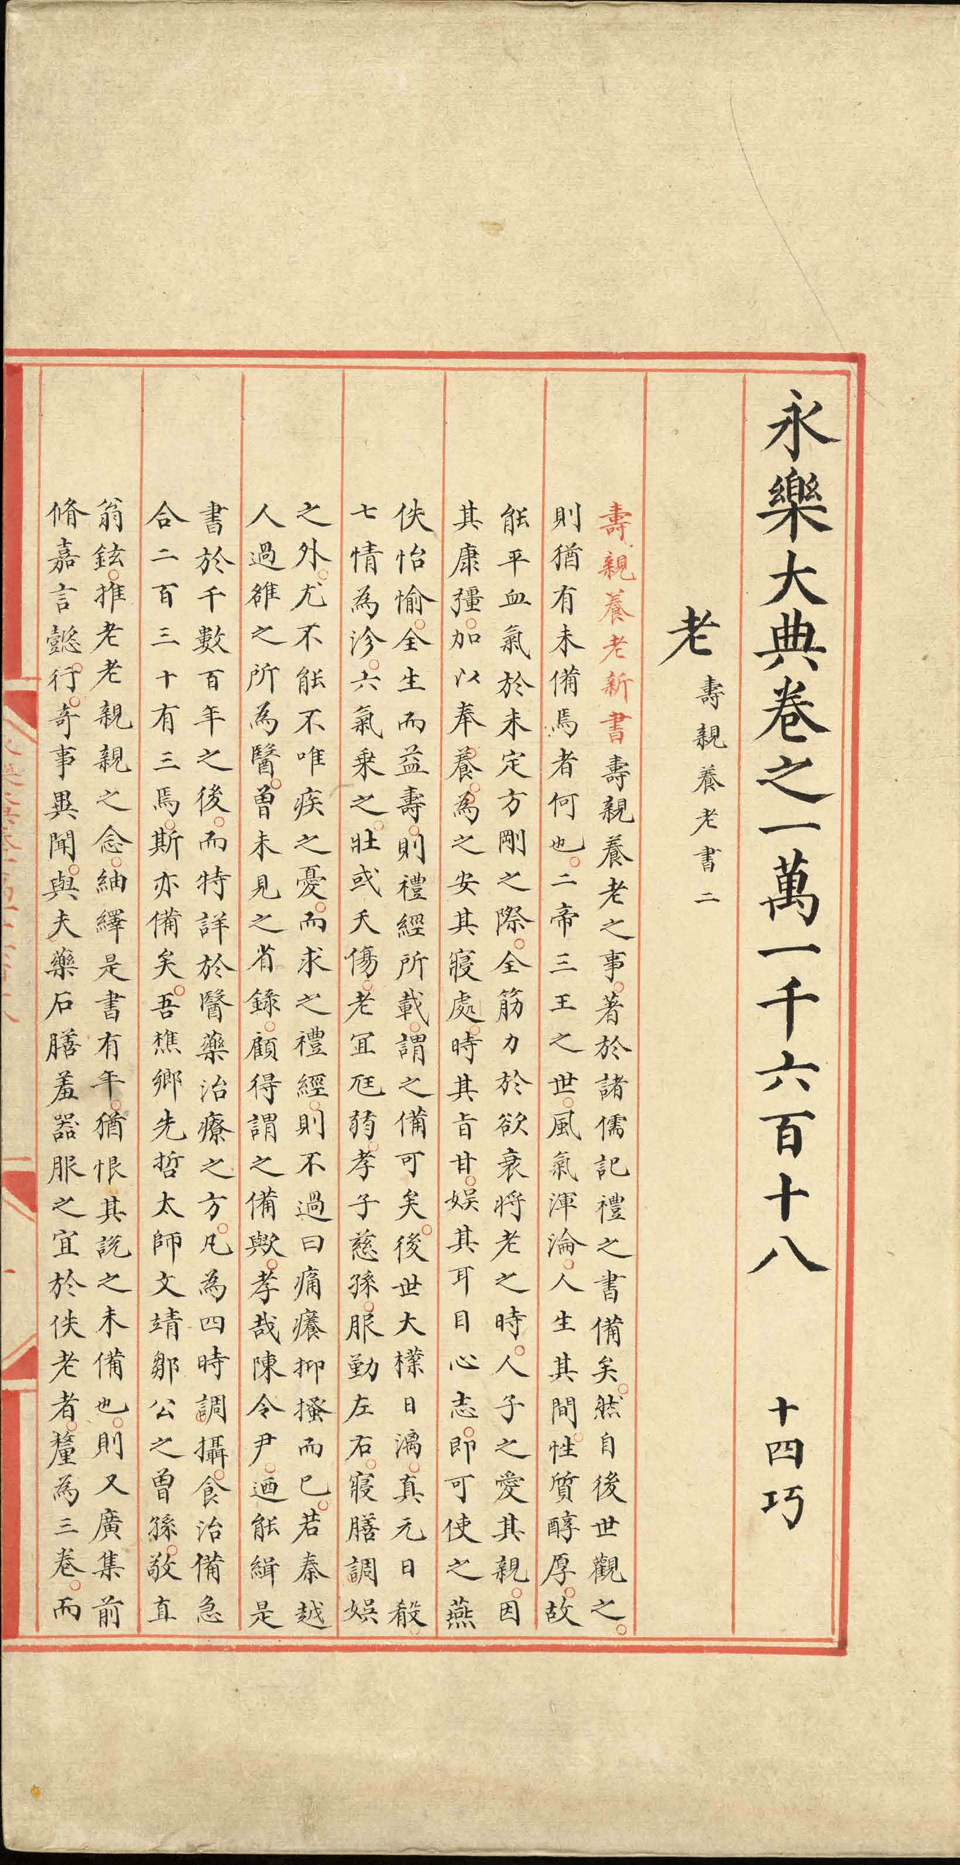 永樂大典卷之一萬一千六百十八 十四巧
老 壽親養老書二
壽親養老新書壽親養老之事。著於諸儒記禮之書備矣。然自後世觀之。
則猶有未備焉者何也。二帝三王之世。風氣渾淪。人生其間。性質醇厚。故
能平血氣於未定方剛之際。全筋力於欲衰將老之時。人子之愛其親。因
其康彊。加以奉養。為之安其寢處。時其旨甘。娛其耳目心志。即可使之燕
佚怡愉。全生而益壽。則禮經所載。謂之備可矣。後世大樸日漓。真元日殽。
七情為沴。六氣乗之。壯或夭傷。老冝尫弱。孝子慈孫。服勤左右。寢膳調娛
之外。尤不能不唯疾之憂。而求之禮經。則不過曰痛癢抑搔而已。若秦越
人過雒之所為醫。曾未見之省錄。顧得謂之備歟。孝哉陳令尹。迺能緝是
書於千數百年之後。而特詳於醫藥治療之方。凡為四時調攝。食治備急
合二百三十有三焉。斯亦備矣。吾樵鄉先哲太師文靖鄒公之曾孫。敬直
翁鉉。推老老親親之念。紬繹是書有年。猶恨其說之未備也。則又廣集前
脩嘉言懿。行。竒事異聞。與夫藥石膳羞器服之宜於佚老者。釐為三卷。而